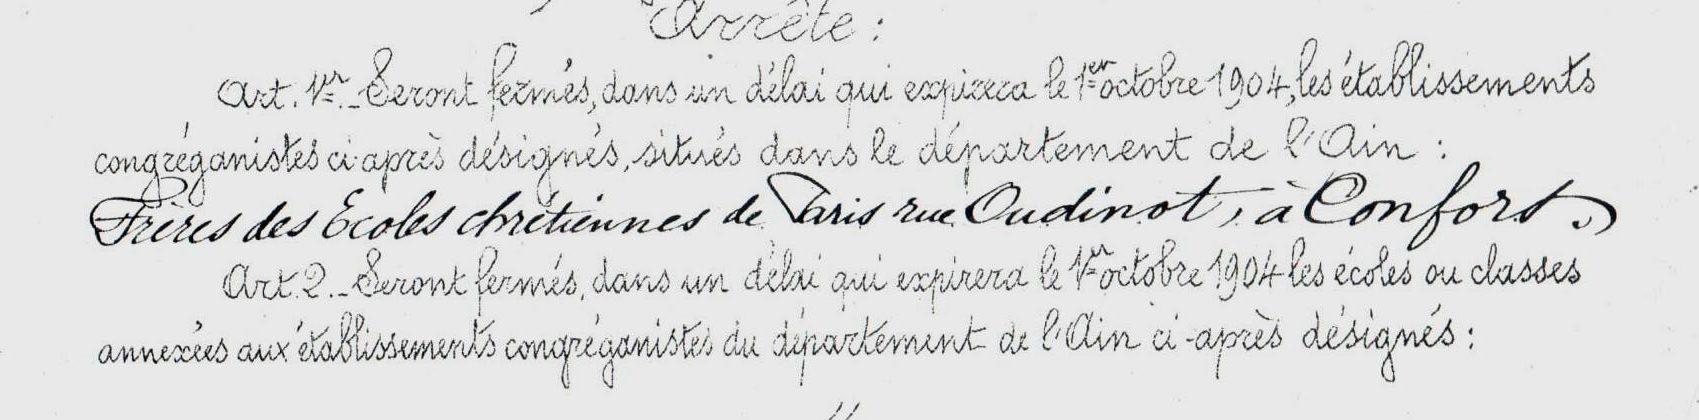 Arrête :
Art. 1er._ Seront fermés, dans un délai qui expirera le 1er octobre 1904, les établissements
congréganistes ci-après désignés, situés dans le département de l'Ain :
Frères des Ecoles chrétiennes de Paris rue Oudinot, à Confort.
Art. 2._ Seront fermés, dans un délai qui expirera le 1er octobre 1904 les écoles ou classes
annexées aux établissements congréganistes du département de l'Ain ci-après désignés :